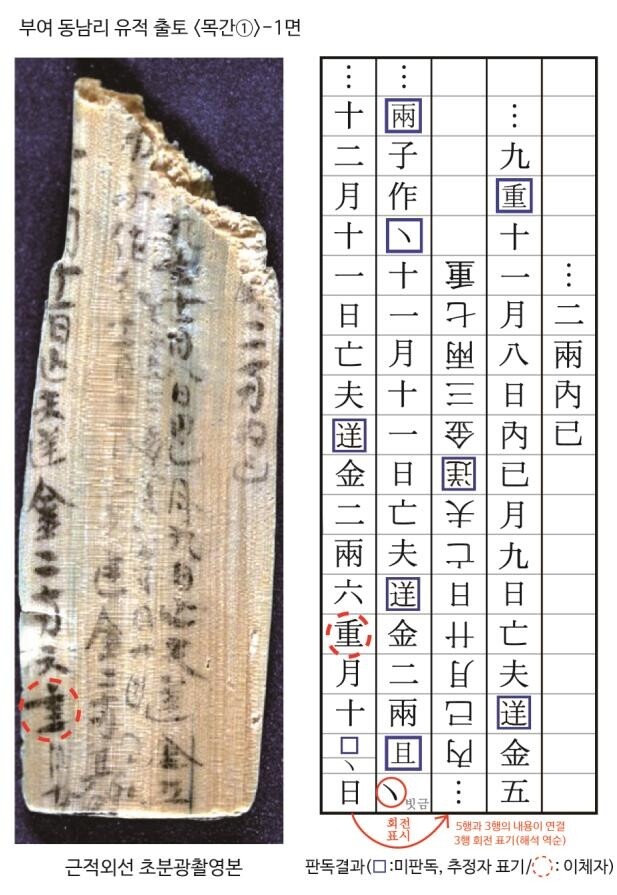 부여 동남리 유적 출토 〈목간①〉-1면
…二兩內已
…九重十一月八日內已月九日亡夫送金五
…內已月廿日亡夫送金三兩七重
…兩子作丶十一月十一日亡夫送金二兩且丶
빗금
…十二月十一日亡夫送金二兩六重月十□丶日
회전
표시
5행과 3행의 내용이 연결
3행 회전 표기(해석 역순)
근적외선 초분광촬영본
판독결과(□:미판독, 추정자 표기/◌: 이체자)